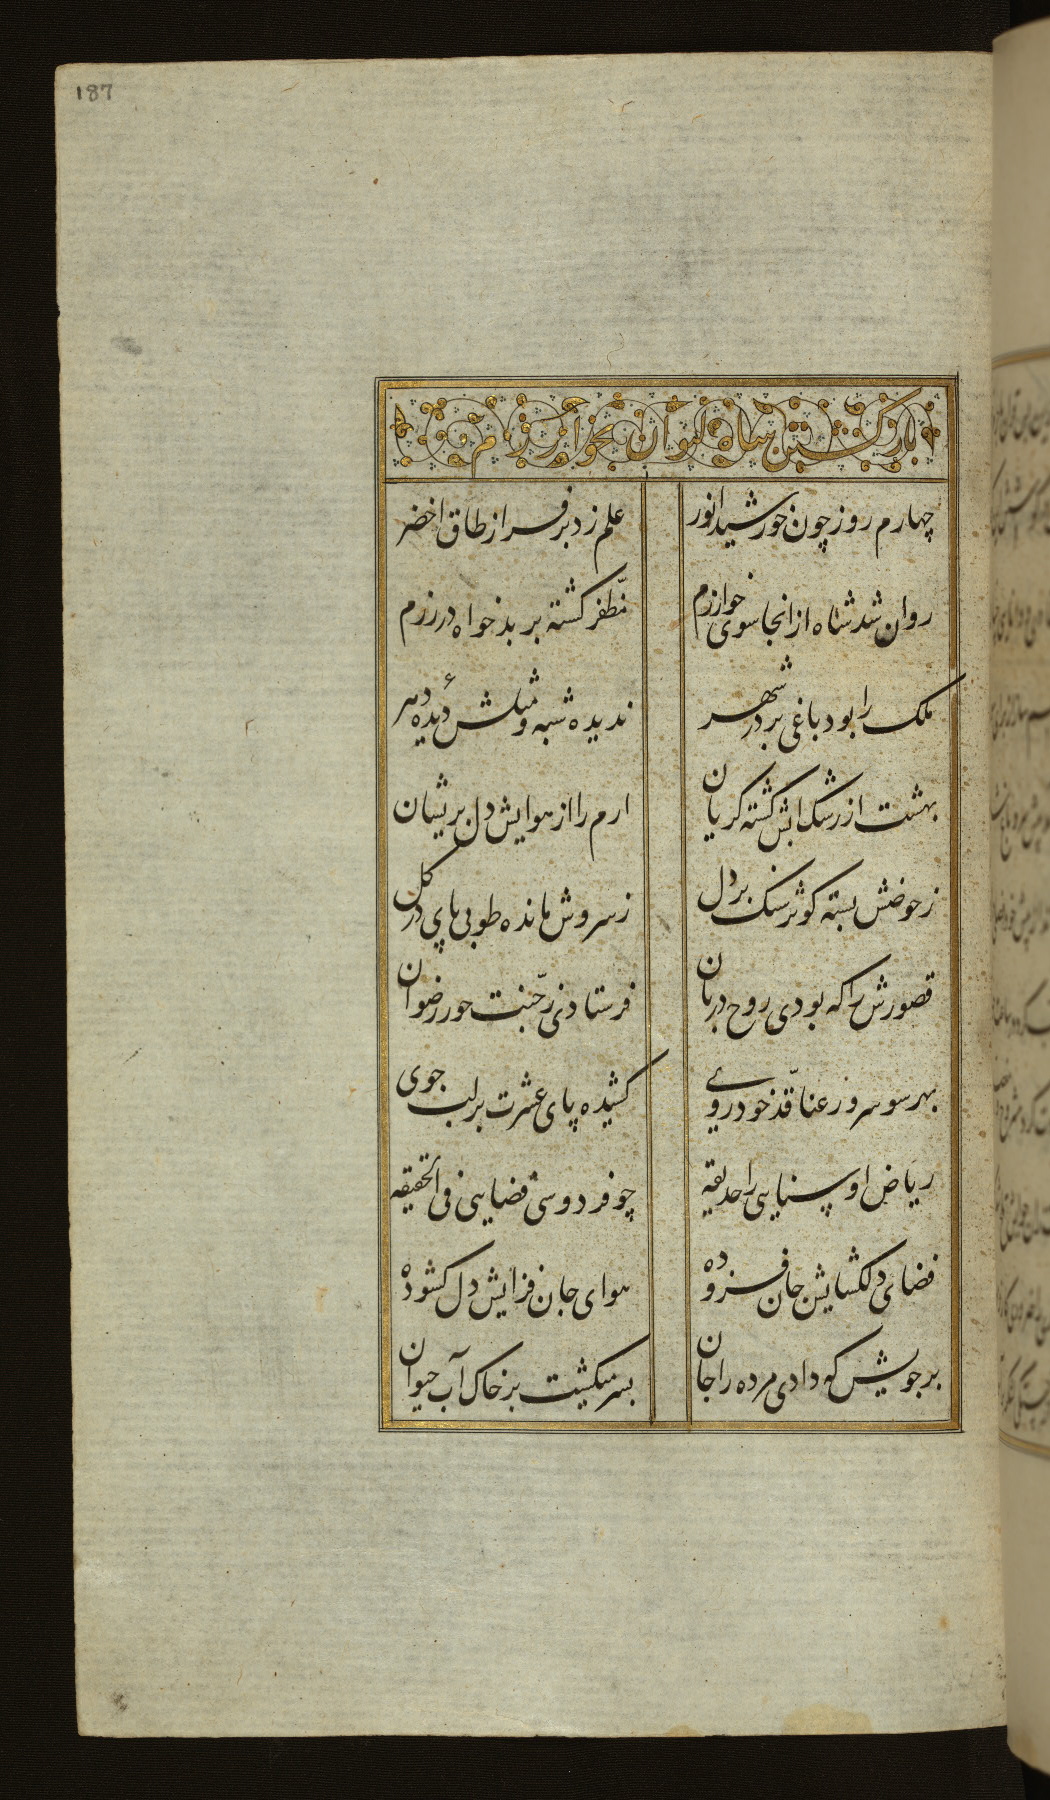 187
باز گشتن شاه کیوان بخوارزم
چهارم روز چون خورشید انور علم زد بر فراز طاق اخضر
روان شد شاه از انجا سوی خوارزم مظفر کشته بر بدخواه در رزم
ملک را بود باغی بر در شهر ندیده شبه و مثلش دیده دهر
بهشت از رشک ابش کشته کریان ارم را از هوایش دل پریشان
ز حوضش بسته کوثر سنک بر دل ز سروش مانده طوبی پای در کل
قصورش را که بودی روح دربان فرستادی ز جنت حور رضوان
بهر سو سرو رعنا قد خودروی کشیده پای عشرت بر لب جوی
ریاض او سنایی را حدیقه چو فردوسی فضایی فی الحقیقه
فضای دلکشایش جان فزوده هوای جان فزایش دل کشوده
بر جویش که دادی مرده را جان بسر میکشت بر خاک آب حیوان